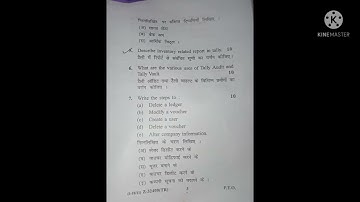 निम्नलिखित पर संक्षिप्त टिप्पणियाँ लिखिए :
(अ)
(ब)
(स)
5. Describe inventory related report in tally. 10
टैली में रिपोर्ट से संबंधित सूची का वर्णन कीजिए।
6. What are the various uses of Tally Audit and Tally Vault. 10
टैली ऑडिट तथा टैली वाल्ट के विभिन्न प्रयोगों का वर्णन कीजिए।
7. Write the steps to : 10
(a) Delete a ledger
(b) Modify a voucher
(c) Create a user
(d) Delete a voucher
(e) Alter company information
निम्नलिखित के चरण लिखिए :
(अ) लेजर डिलीट करने के
(ब) वाउचर करने के
(स) यूजर बनाने के
(द) वाउचर डिलीट करने के
(इ) कम्पनी सूचना को बदलने के
P.T.O.
KINEMASTER